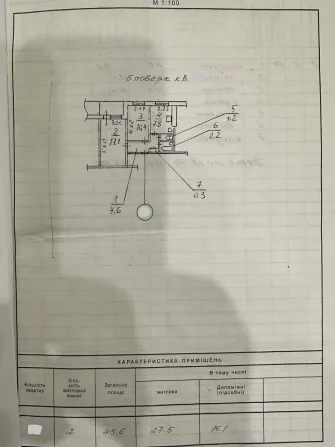 М 1:100
6 поверх кв.
5
2.2
6
2.2
3
4
7.8
2
1
4.6
7
0.3
ХАРАКТЕРИСТИКА ПРИМІЩЕНЬ
Кількість квартир
Кіль-
кість
житлових
кімнат
Загальна
площа
В тому числі
житлова
Допоміжні
(підсобні)
2
43.6
27.5
16.1